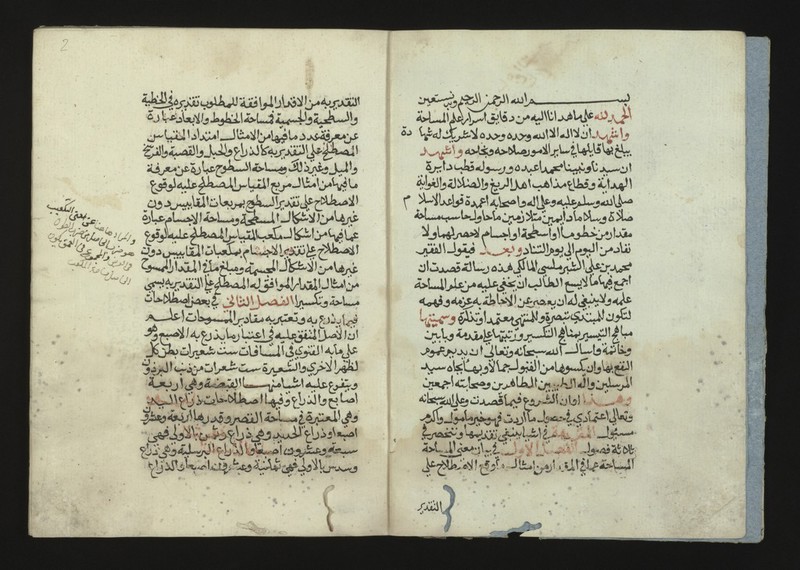 بسم الله الرحمن الرحيم وبه نستعين
الحمد لله على ما هدانا اليه من دقايق اسرار علم المساحة
واشهد ان لا اله الا الله وحده لا شريك له شهادة
يبلغ بها قايلها في ساير الامور صلاحه ونجاحه واشهد
ان سيدنا ونبينا محمدا عبده ورسوله قطب دايرة
الهداية وقطاع مذاهب اهل الزيغ والضلالة والغواية
صلى الله وسلم عليه وعلى اله واصحابه اعمدة قواعد الاسلام
صلاة وسلاما دايمين متلازمين ما حاول حاسب مساحة
مقدار من خطوط او اسطحة او اجسام لا حصر لهما ولا
نفاد من اليوم الى يوم التناد وبعد فيقول الفقير
محمد بن علي الشبراملسي المالكي هذه رسالة قصدت ان
اجمع فيها ما لا يسع الطالب ان يخفى عليه من علم المساحة
علمه ولا ينبغي له ان يعجز عن الاحاطة به عزمه وفهمه
لتكون للمبتدي تبصرة وللمنتهي معتمدا وتذكرة وسميتها
مباهج التيسير بمناهج التكسير ورتبتها على مقدمة وبابين
وخاتمة واسال الله سبحانه وتعالى ان يديم عموم
النفع بها وان يكسوها من القبول جمالا وبها بجاه سيد
المرسلين واله الطيبين الطاهرين وصحابته اجمعين
وهذا اوان الشروع فيما قصدت وعلى الله سبحانه
وتعالى اعتمادي في حصول ما اردت فهو خير مامول واكرم
مسئول المقدمة في اشيا ينبغي تقديمها وتنحصر في
ثلاثة فصول الفصل الاول في بيان معنى المساحة
المساحة عما في المقدار من امثال ما وقع الاصطلاح على
التقدير
التقدير به من الاقدار الموافقة للمطلوب تقديره في الخطية
والسطحية والجسمية فمساحة الخطوط والابعاد عبارة
عن معرفة عدد ما فيها من الامثال امتداد المقياس
المصطلح على التقدير به كالذراع والحبل والقصبة والفرسخ
والميل وغير ذلك ومساحة السطوح عبارة عن معرفة
ما فيها من امثال مربع المقياس المصطلح عليه لوقوع
الاصطلاح على تقدير السطوح بمربعات المقاييس دون
غيرها من الاشكال المسطحة ومساحة الاجسام عبارة
عما فيها من اشكال مكعب المقياس المصطلح عليه لوقوع
الاصطلاح على تقدير الاجسام بمكعبات المقاييس دون
غيرها من الاشكال المجسمة ومبلغ ما في المقدار الممسوح
من امثال المقدار الموافق له المصطلح على التقدير به يسمى
مساحة وتكسيرا الفصل الثاني في بعض اصطلاحات
فيما يذرع به وتعتبر به مقادير الممسوحات اعلم
ان الاصل المتفق عليه في اعتبار ما يذرع به الاصبع وهو
على ما به الفتوى في المسافات ست شعيرات بطن كل
لظهر الاخرى والشعيرة ست شعرات من ذنب البرذون
ويتفرع عليه اشيا منها القبضة وهي اربعة
اصابع والذراع وفيها اصطلاحات ذراع اليد
وهي المعتبرة في مساحة القصر وقدرها اربعة وعشرون
اصبعا وذراع الحديد وهي ذراع وثمن بالاولى فهي
سبعة وعشرون اصبعا والذراع المرسلية وهي ذراع
وسدس بالاولى فهي ثمانية وعشرون اصبعا والذراع